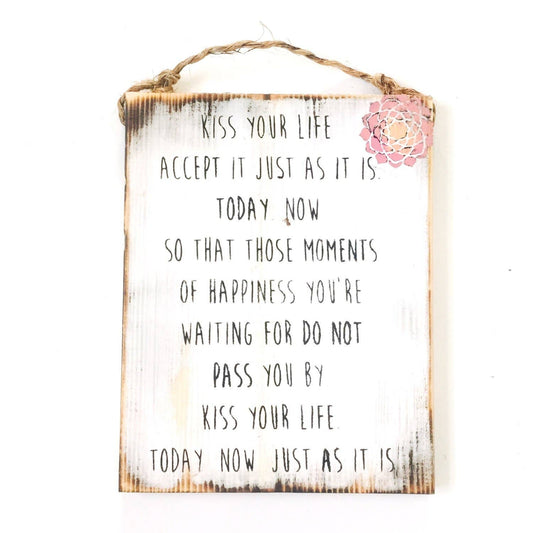 KISS YOUR LIFE
ACCEPT IT JUST AS IT IS.
TODAY. NOW
SO THAT THOSE MOMENTS
OF HAPPINESS YOU'RE
WAITING FOR DO NOT
PASS YOU BY
KISS YOUR LIFE.
TODAY NOW JUST AS IT IS